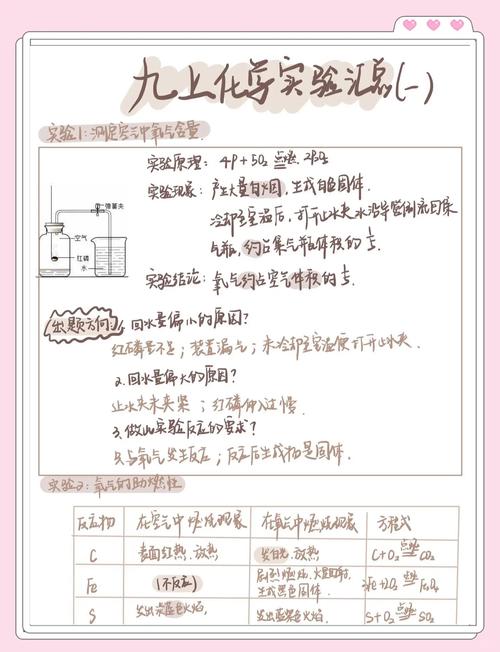 九上化学实验汇总(一)
实验1:测定空气中氧气含量.
实验原理: 4P+5O₂ 点燃 2P₂O₅
实验现象: 产生大量白烟,生成白色固体.
冷却至室温后,打开止水夹水沿导管倒流回集
气瓶,约占集气瓶体积的1/5.
实验结论: 氧气约占空气体积的1/5.
弹簧夹
空气
红磷
水
出题方向
1.回水量偏小的原因?
红磷量不足;装置漏气;未冷却至室温便打开止水夹.
2.回水量偏大的原因?
止水夹未夹紧;红磷伸入过慢.
3.做此实验反应的要求?
只与氧气发生反应;反应后生成物是固体.
实验2:氧气的助燃性
反应物 在空气中燃烧现象 在氧气中燃烧现象 方程式
C 表面红热,放热 发白光,放热 C+O₂ 点燃 CO₂
Fe (不反应) 剧烈燃烧,火星四射,生成黑色固体. 3Fe+2O₂ 点燃 Fe₃O₄
S 发出淡蓝色火焰, 发出蓝紫色火焰. S+O₂ 点燃 SO₂